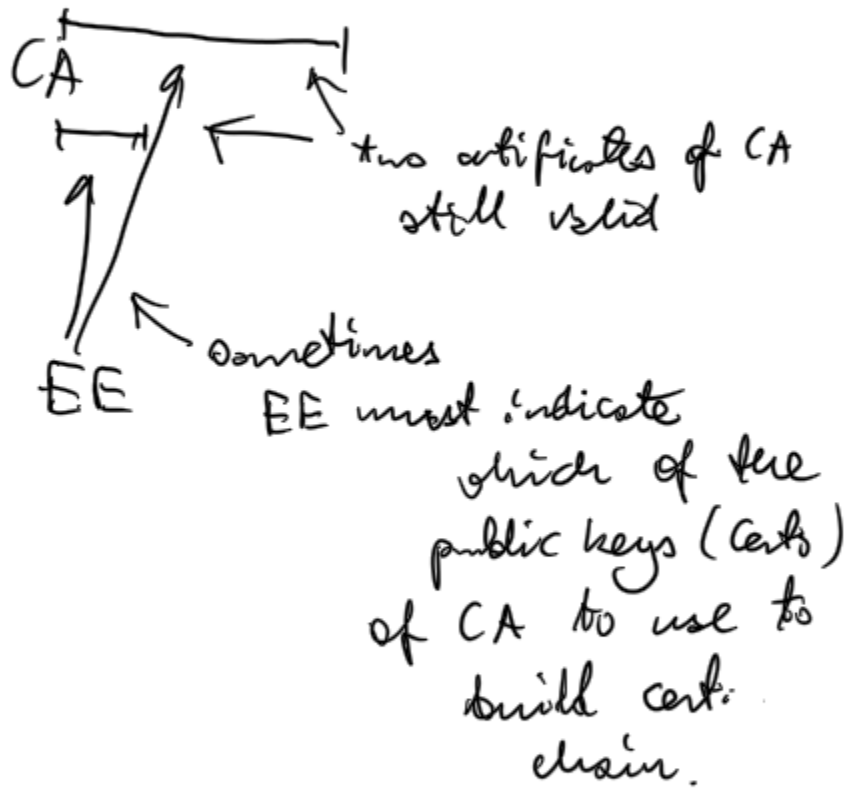 CA
two certificates of CA
still valid
sometimes
EE
EE must indicate
which of the
public keys (certs)
of CA to use to
build cert.
chain.